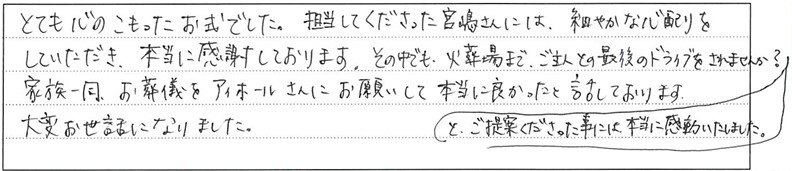 とても心のこもったお式でした。担当してくださった宮嶋さんには、細やかな心配りを
していただき、本当に感謝しております。その中でも、火葬場まで、ご主人との最後のドライブをされませんか？
家族一同、お葬儀をアイホールさんにお願いして本当に良かったと話しております。
大変お世話になりました。
と、ご提案くださった事には、本当に感動いたしました。